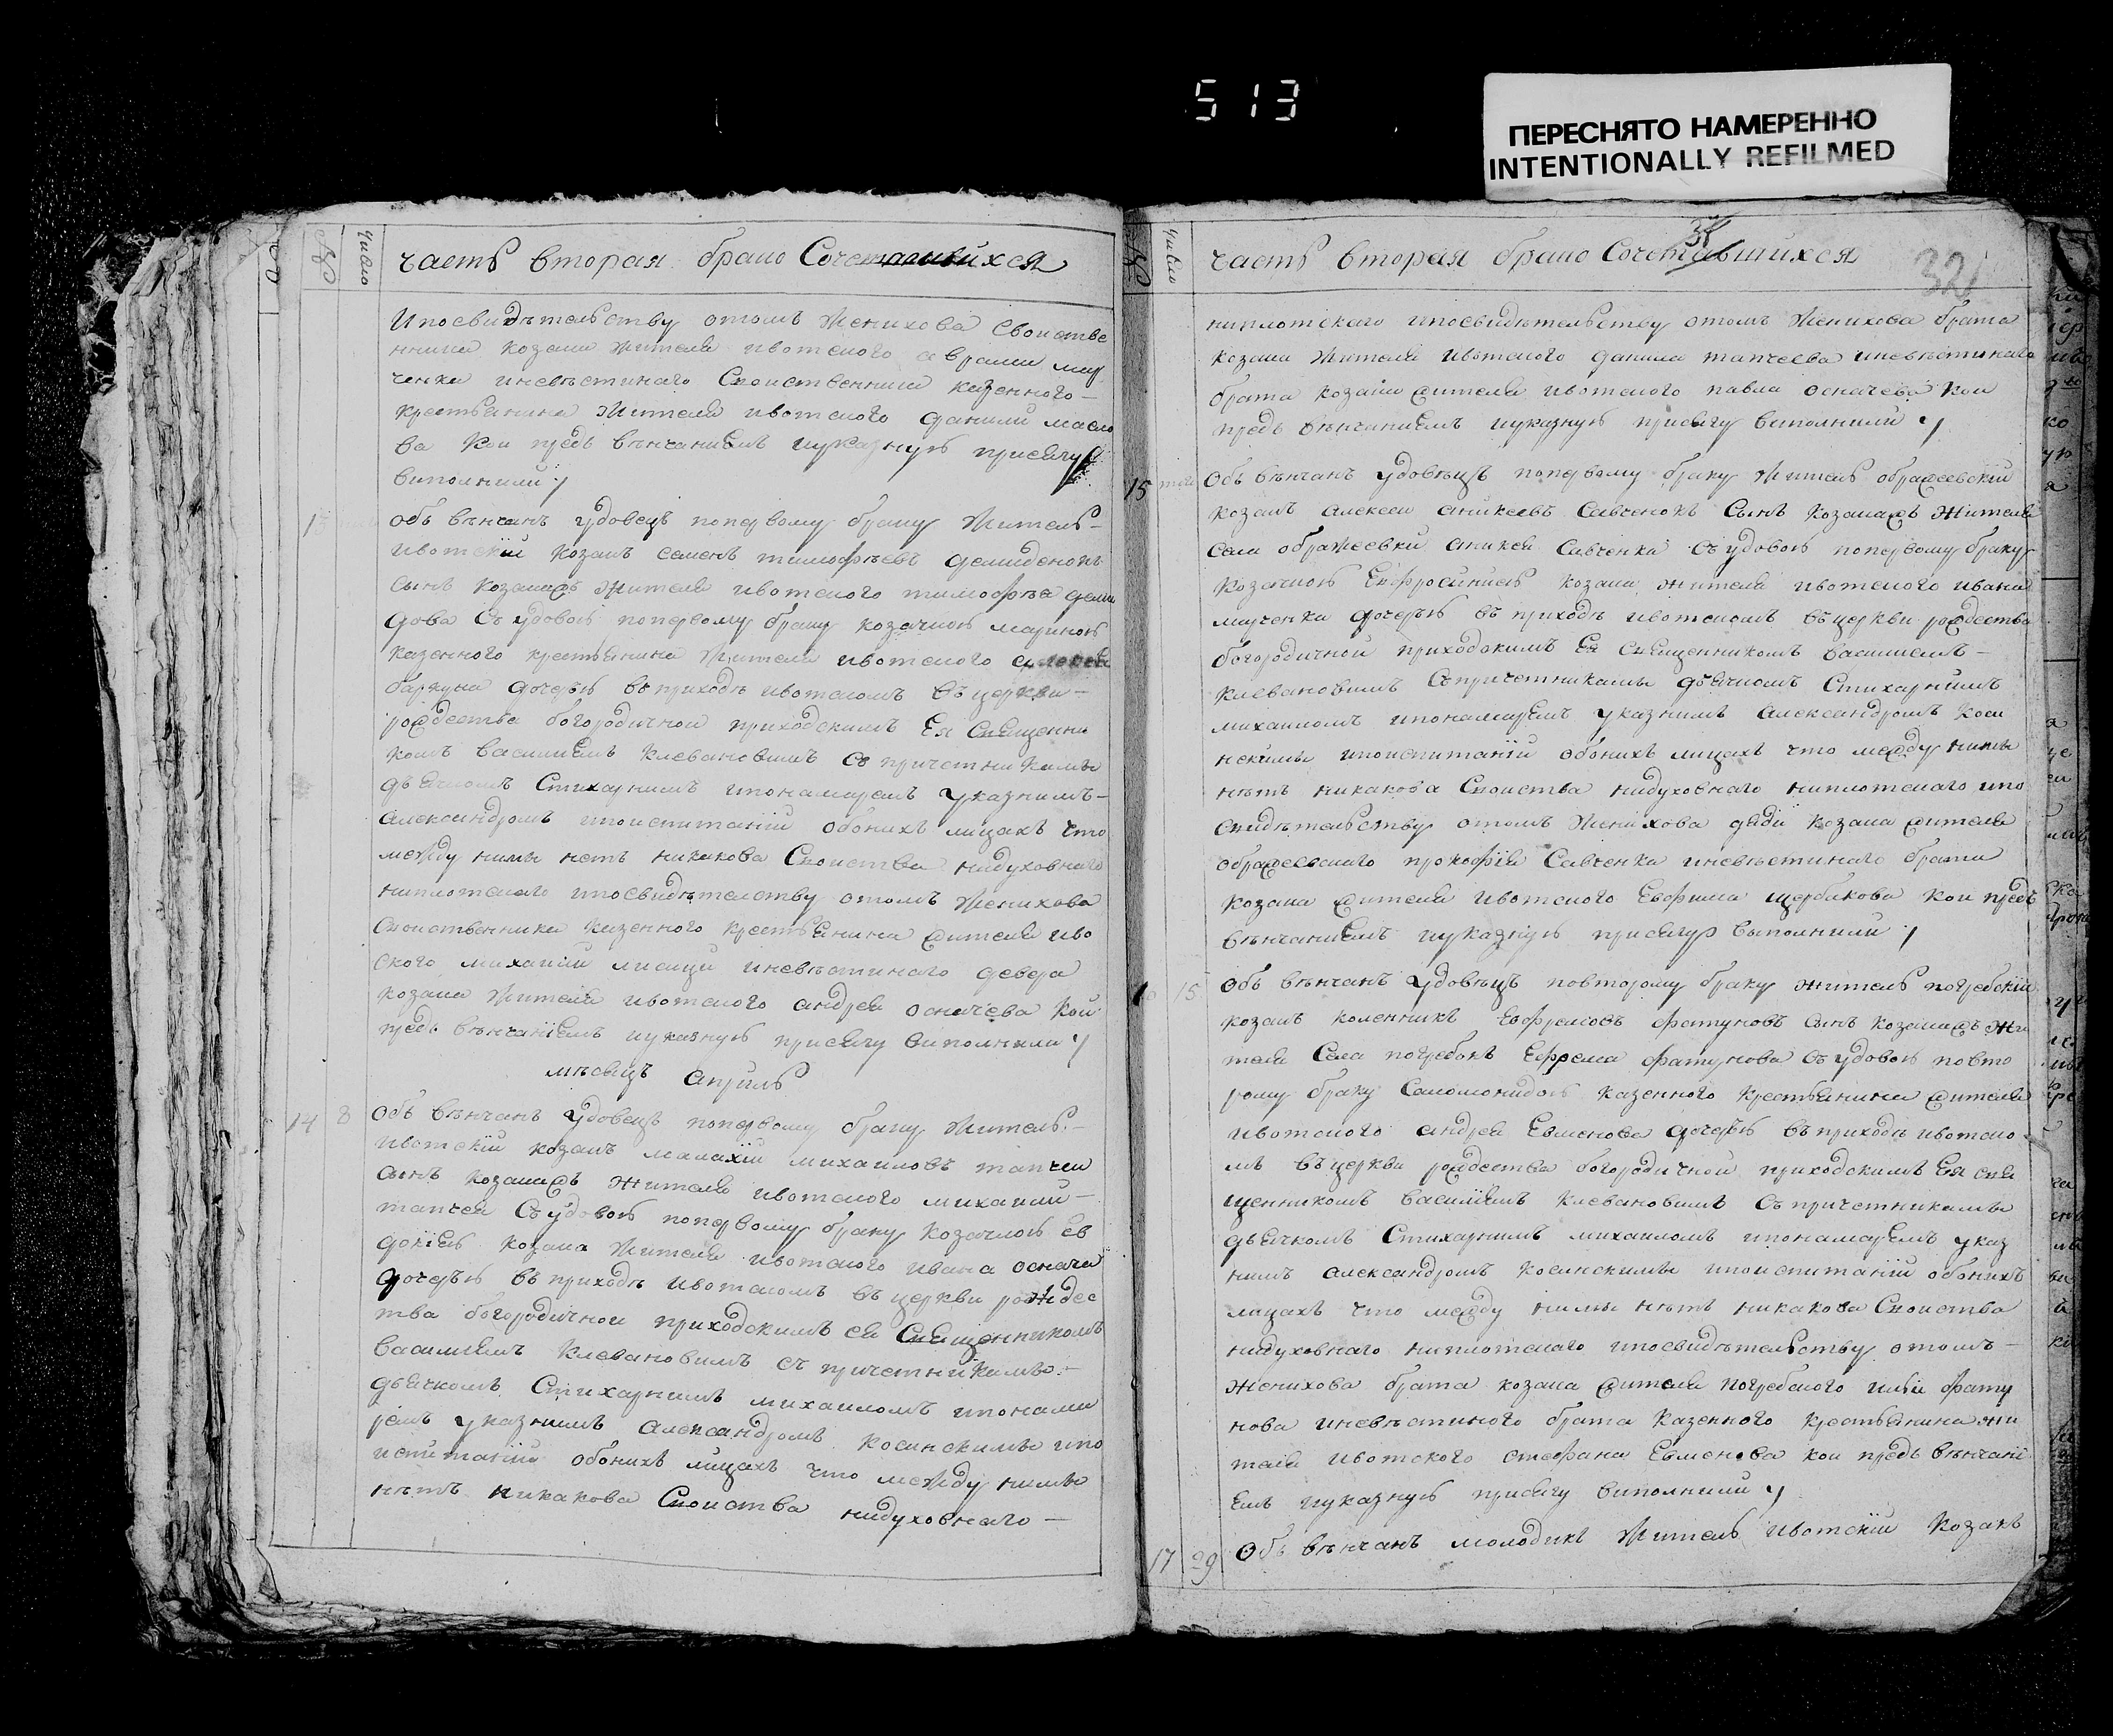 513
ПЕРЕСНЯТО НАМЕРЕННО
INTENTIONALLY REFILMED
число
часть вторая брако Сочетавшихся
Ипосвидѣтельству отомъ Женихова Своистве
нника козака Жителя ивотского аврама мир
ченка иневѣстинаго Своиственника казенного
крестьянина Жителя ивотского данили масло
ва кои предь вѣнчаниемъ иуказную присягу
виполнили
13
Объ вѣнчанъ удовецъ попервому браку Житель
ивотскїй козакъ семенъ тимофѣевъ демиденокъ
сынъ козачей Жителя ивотского тимофѣа деми
дова Съ удовою попервому браку козачкою мариною
казенного крестьянина Жителя ивотского
баркуна дочерью въ приходѣ ивотскомъ въ церкви
рождества богородичнои приходскимъ Ея Священни
комъ василиемъ клевановимъ съ причетниками
дьячкомъ Стихарнимъ ипонамаремъ указнимъ
александромъ ипоиспитанїи обонихъ лицахъ что
между ними нетъ никакова Своиства нидуховнаго
ниплотскаго ипосвидѣтелству отомъ Женихова
Своиственника казенного крестьянина жителя иво
ского михаили лисици иневѣстинаго девера
козака Жителя ивотского андрея осначева кои
предь вѣнчанїемъ иуказную присягу виполнили
мѣсяцъ априль
14 8
Объ вѣнчанъ удовецъ попервому браку Житель
ивотскїй козакъ малахїй михаиловъ тапчеи
сынъ козачей жителя ивотского михаили
тапчея Съ удовою попервому браку козачкою ев
докїею козака Жителя ивотского ивана осначи
дочерью въ приходѣ ивотскомъ въ церкви рождес
тва богородичнои приходскимъ ея Священникомъ
василиемъ клевановимъ съ причетниками
дьячкомъ Стихарнимъ михаиломъ ипонама
ремъ указнимъ александромъ косинскими ипо
испитанїи обонихъ лицахъ что между ними
нѣтъ никакова Своиства нидуховнаго
число
часть вторая брако Сочетавшихся
32
ниплотскаго ипосвидѣтельству отомъ Женихова брата
козака Жителя ивотского данила тапчеева иневѣстинаго
брата козака жителя ивотского павла осначева кои
предь вѣнчаниемъ иуказную присягу виполнили
15
Объ вѣнчанъ удовѣцъ попервому браку Житель ображеевскїй
козакъ алексеи аникеевъ Савченокъ Сынъ козачей Жителя
села ображеевки аникея Савченка съ удовою попервому браку
козачкою Евфросиниею козака жителя ивотского ивана
мирченка дочерью въ приходѣ ивотскомъ въ церкви рождества
богородичной приходскимъ Ея Священникомъ василиемъ
клевановимъ Съпричетниками дьячкомъ Стихарнимъ
михаиломъ ипонамаремъ указнимъ Александромъ Коси
нскими ипоиспитанїи обонихъ лицахъ что между ними
нѣтъ никакова Своиства нидуховнаго ниплотскаго ипо
свидѣтельству отомъ Женихова дяди козака жителя
ображеевского прокофїя Савченка иневѣстинаго брата
козака жителя ивотского Евфима щербакова кои предь
вѣнчаниемъ иуказную присягу выполнили
15
Объ вѣнчанъ удовѣцъ повторому браку житель погребскїй
козакъ коленникъ Евфремовъ фатуновъ сынъ козачей жи
теля Села погребокъ Ефрема фатунова Съ удовою повто
рому браку Саломонидою казенного крестьянина жителя
ивотского андрея Евменова дочерью въ приходѣ ивотско
мъ въ церкви рождества богородичнои приходскимъ Ея свя
щенникомъ василиемъ клевановимъ Съ причетниками
дьячкомъ Стихарнимъ михаиломъ ипонамаремъ указ
нимъ александромъ косинскими ипоиспитанїи обонихъ
лицахъ что между ними нѣтъ никакова Своиства
нидуховнаго ниплотскаго ипосвидѣтельству отомъ
Женихова брата козака жителя погребского илїи фату
нова иневѣстиного брата казенного крестьянина жи
теля ивотского стефана Евменова кои предь вѣнчанї
емъ иуказную присягу виполнили
17 29
Объ вѣнчанъ молодикъ Житель ивотскїй Козакъ